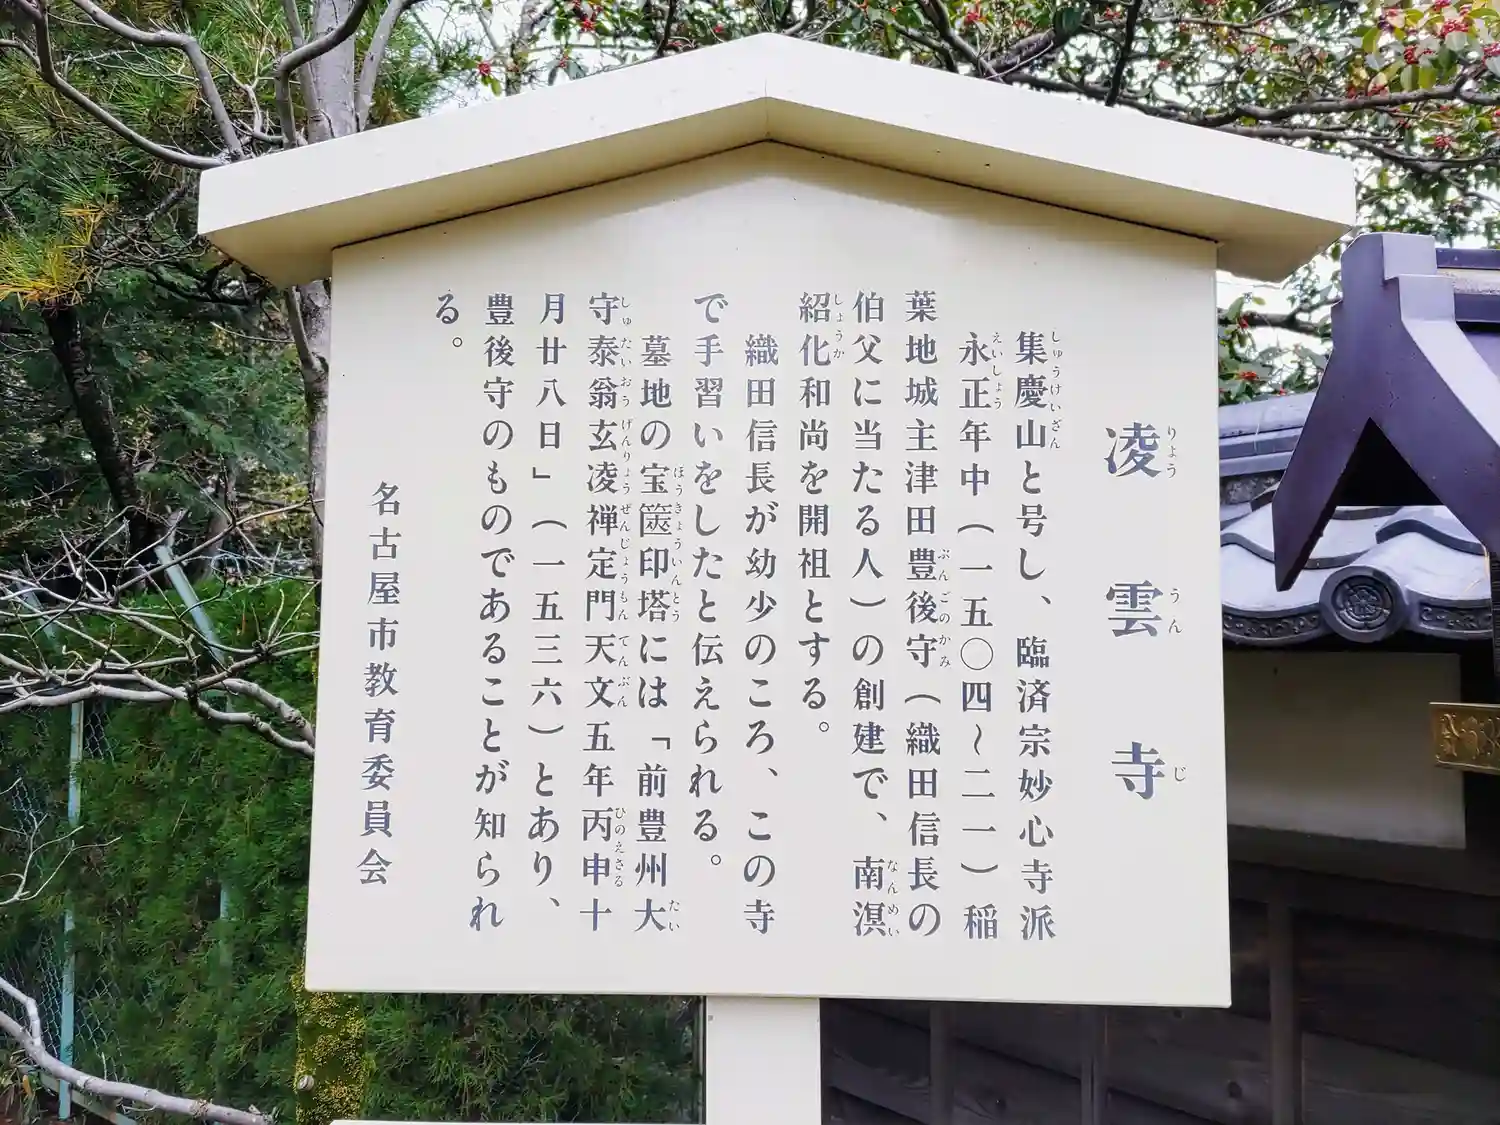 凌雲寺
集慶山と号し、臨済宗妙心寺派
永正年中(一五〇四~二一)稲
葉地城主津田豊後守(織田信長の
伯父に当たる人)の創建で、南溟
紹化和尚を開祖とする。
織田信長が幼少のころ、この寺
で手習いをしたと伝えられる。
墓地の宝篋印塔には「前豊州大
守泰翁玄凌禅定門天文五年丙申十
月廿八日」(一五三六)とあり、
豊後守のものであることが知られ
る。
名古屋市教育委員会